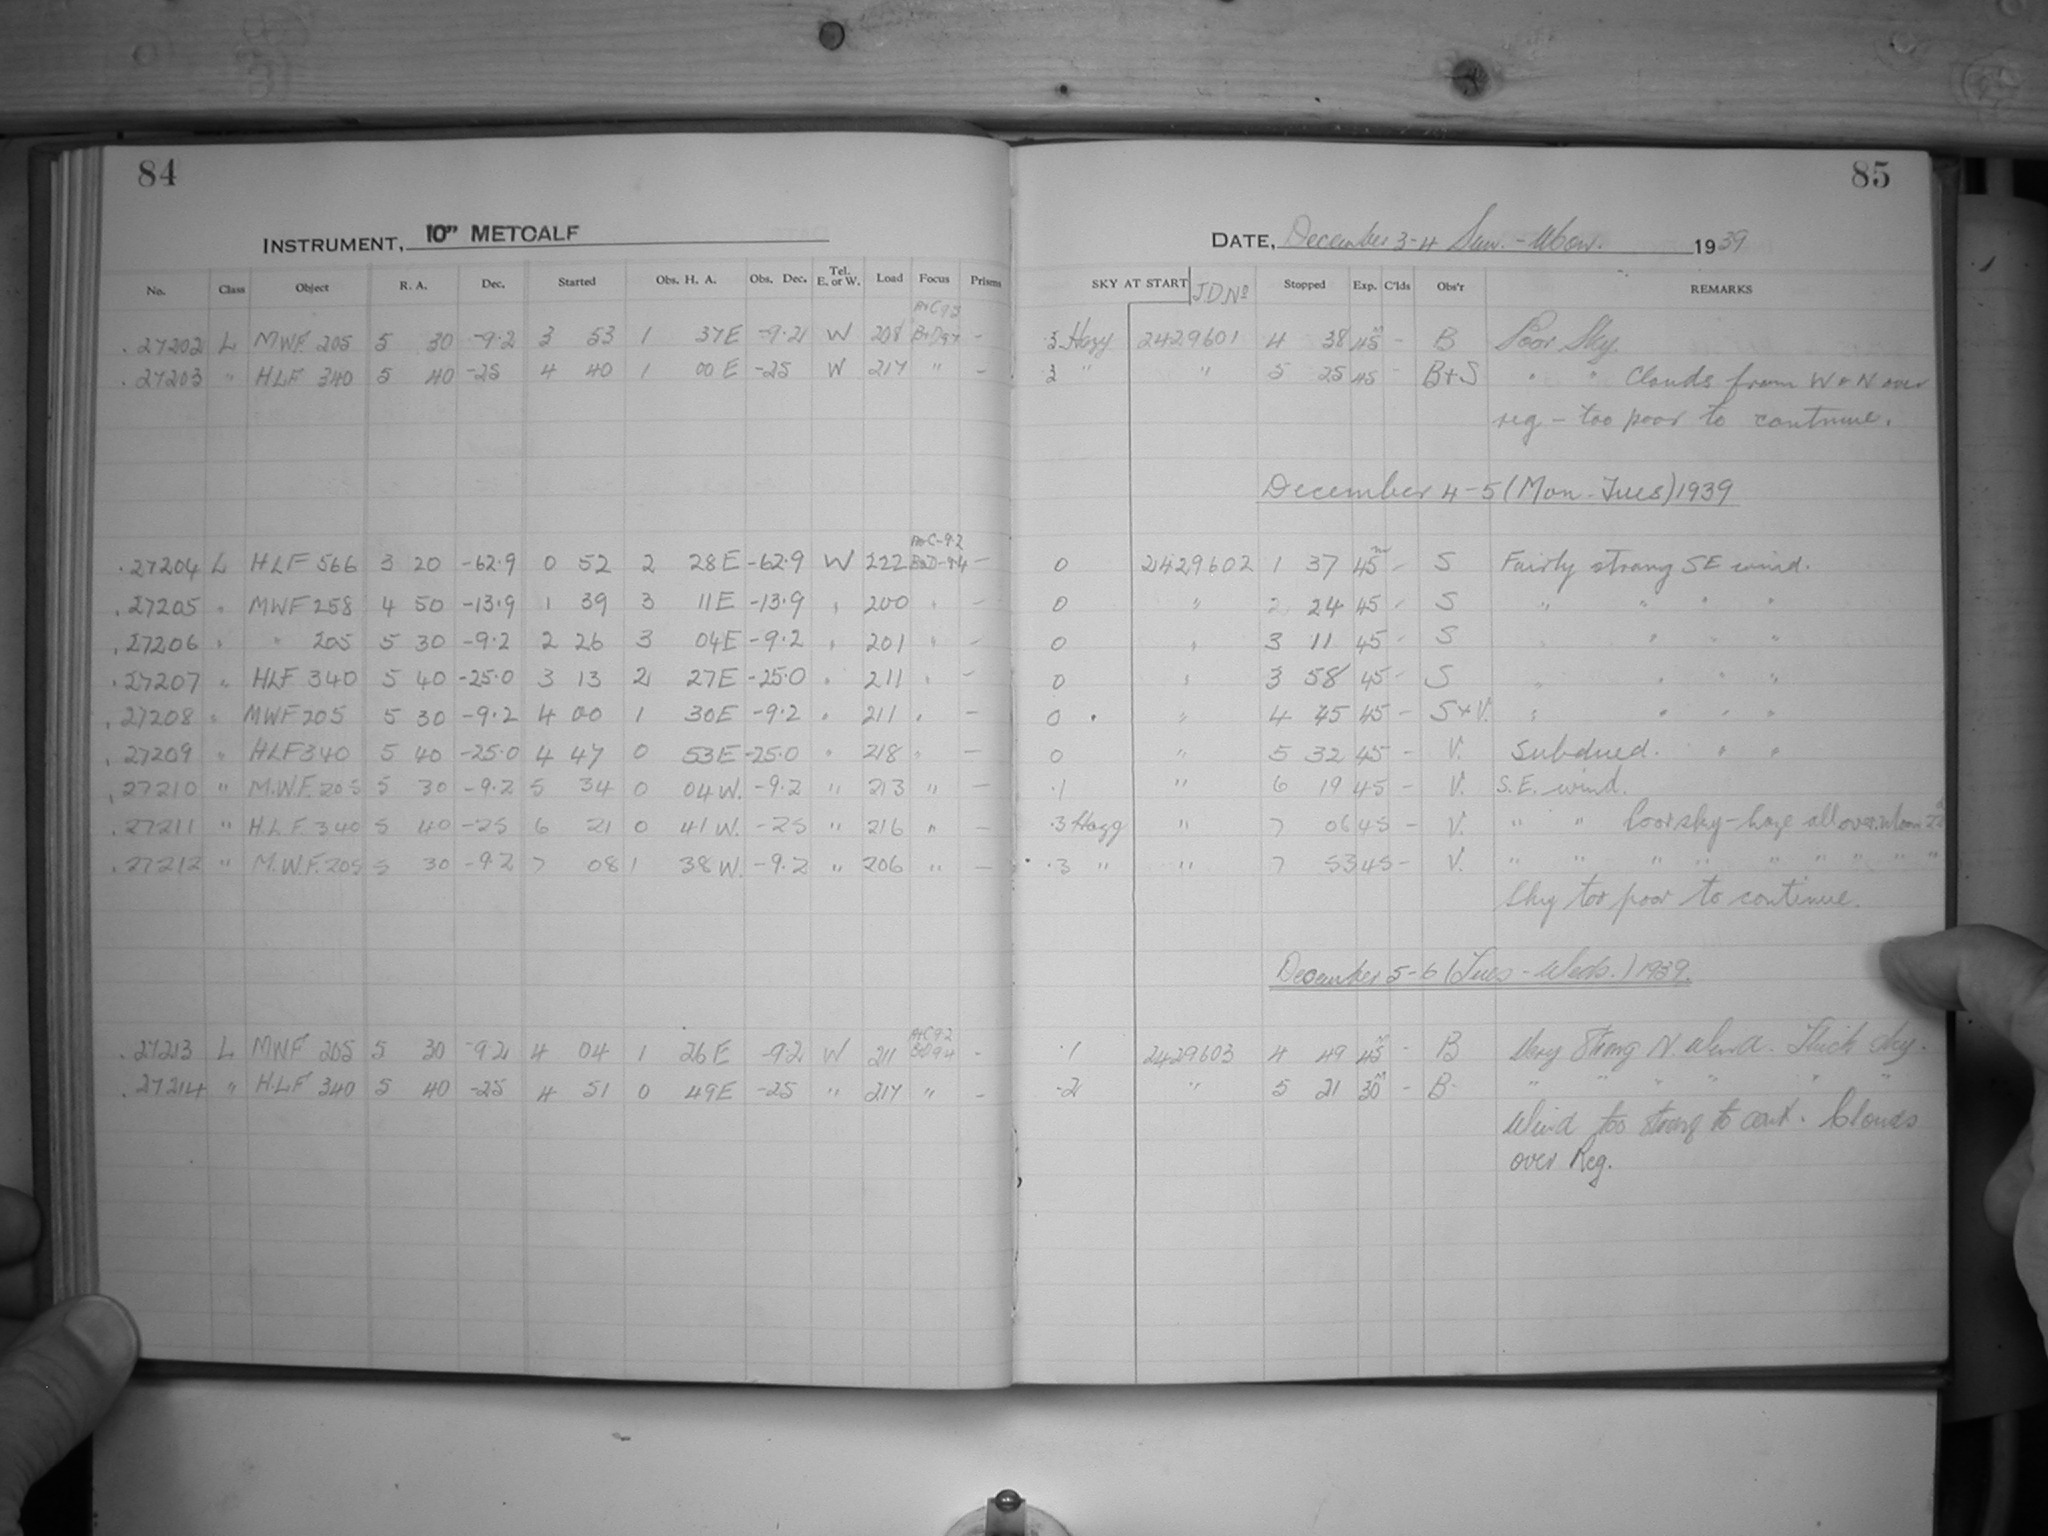 84
INSTRUMENT, 10" METCALF
No. Class Object R. A. Dec. Started Obs. H. A. Obs. Dec. Tel. E. or W. Load Focus Prisms
27202 L MWF 205 5 30 -9.2 3 53 1 37E -9.2 W 208 -
27203 " HLF 340 5 40 -25 4 40 1 00E -25 W 217 " -
27204 L HLF 566 3 20 -62.9 0 52 2 28E -62.9 W 222 -
27205 " MWF 258 4 50 -13.9 1 39 3 11E -13.9 " 200 " -
27206 " " 205 5 30 -9.2 2 26 3 04E -9.2 " 201 " -
27207 " HLF 340 5 40 -25.0 3 13 2 27E -25.0 " 211 " -
27208 " MWF 205 5 30 -9.2 4 00 1 30E -9.2 " 211 " -
27209 " HLF 340 5 40 -25.0 4 47 0 53E -25.0 " 218 " -
27210 " M.W.F. 205 5 30 -9.2 5 34 0 04W. -9.2 " 213 " -
27211 " H.L.F. 340 5 40 -25 6 21 0 41W. -25 " 216 " -
27212 " M.W.F. 205 5 30 -9.2 7 08 1 38W. -9.2 " 206 " -
27213 L MWF 205 5 30 -9.2 4 04 1 26E -9.2 W 211 A+C 9.2 B+D 9.4 -
27214 " H.L.F 340 5 40 -25 4 51 0 49E -25 " 217 " -
85
DATE, December 3-4 Sun. - Mon. 1939
SKY AT START J.D. No Stopped Exp. C'lds Obs'r REMARKS
.3 Hazy 2429601 4 38 45m - B Poor Sky.
3 " " 5 25 45 - B+S " " Clouds from W & N over
reg - too poor to continue.
December 4-5 (Mon - Tues) 1939
0 2429602 1 37 45m - S Fairly strong SE wind.
0 " 2 24 45 - S " " " "
0 " 3 11 45 - S " " " "
0 " 3 58 45 - S " " " "
0 " 4 45 45 - S+V. " " " "
0 " 5 32 45 - V. Subdued. " "
.1 " 6 19 45 - V. S.E. wind.
.3 Hazy " 7 06 45 - V. " " Poor sky - haze all over. Moon
.3 " " 7 53 45 - V. " " " " " " " " "
Sky too poor to continue.
December 5-6 (Tues - Weds.) 1939.
.1 2429603 4 49 45m - B Very Strong N. Wind. Thick sky.
.2 " 5 21 30m - B " " " " " "
Wind too strong to cont. Clouds
over Reg.